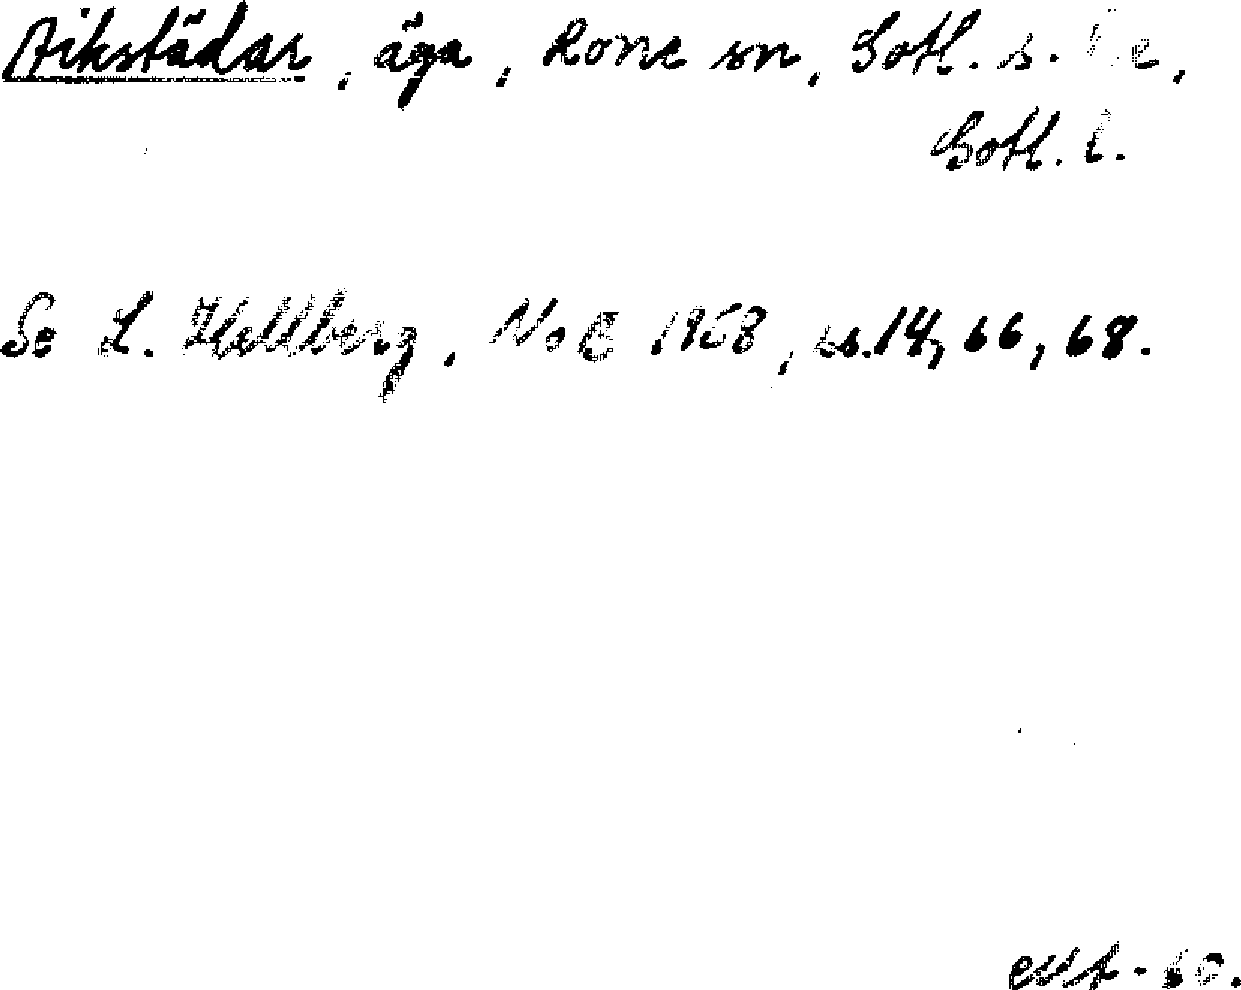 Aikstädar, äga, Rone sn, Gotl. s. hde,
Gotl. l.
Se L. Hellberg, NoB 1958, ss. 14, 66, 68.
- 60.